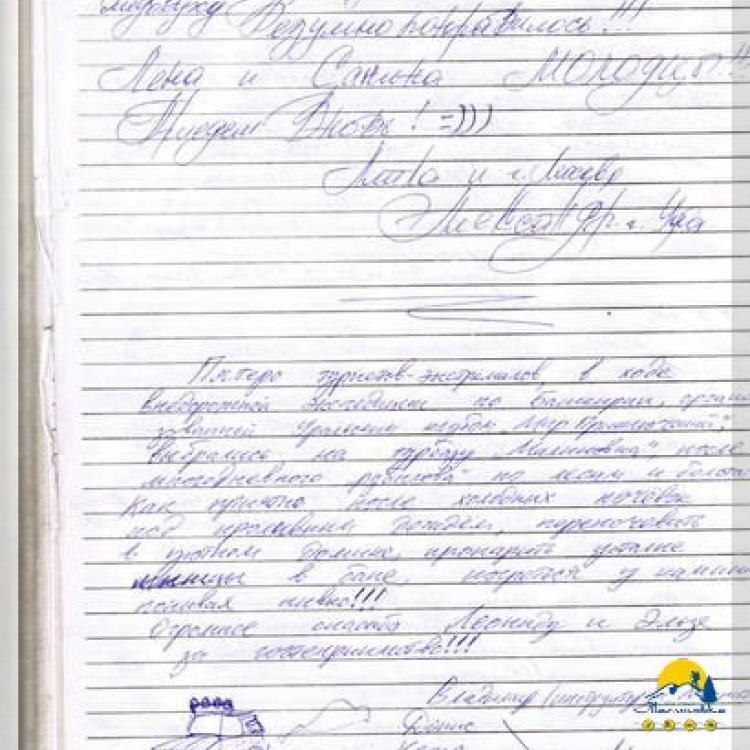 Безумно понравилось!!!
Лена и Санька МОЛОДЦЫ!!
Приедем Вновь! =)))
и г.
Александр г. Уфа
Пятеро туристов-экстремалов, в ходе
внедорожной экспедиции по Башкирии, органи
зованной Уральским клубом „Мир Приключений",
выбрались на турбазу после
многодневного по лесам и болотам
Как приятно после холодных ночёвок
под проливным дождём, переночевать
в уютном домике, пропарить усталые
мышцы в бане, погреться у камина
попивая пивко!!!
Огромное спасибо Леониду и Эльзе
за гостеприимство!!!
Владимир (инструктор
Денис